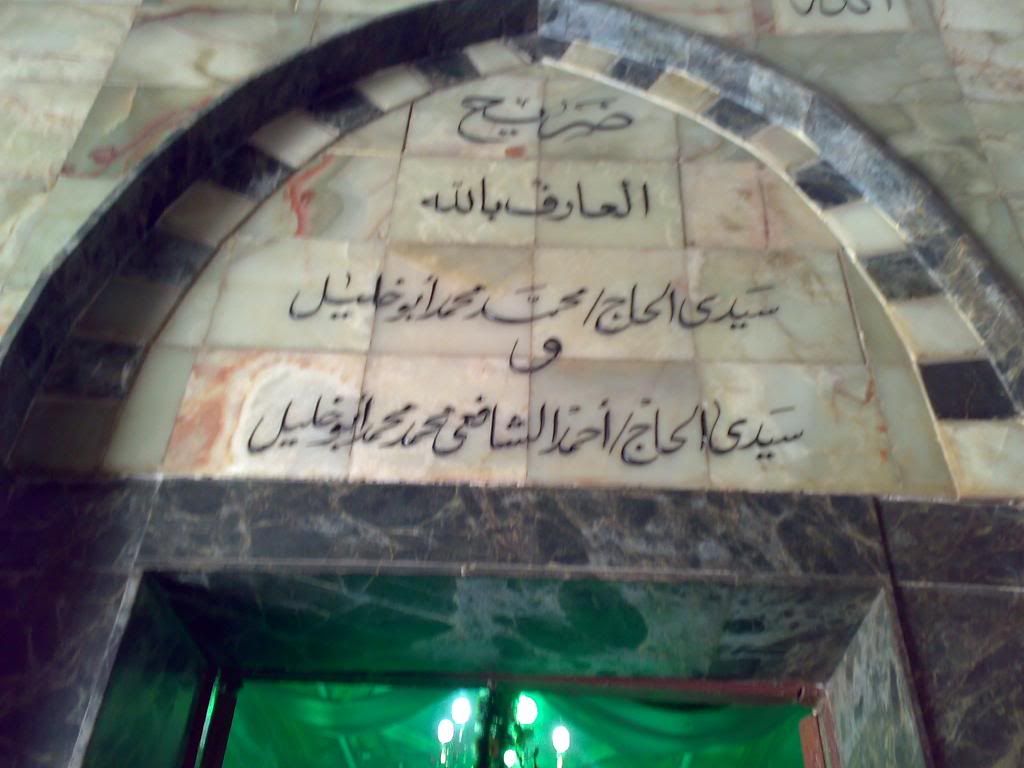 ضريح
العارف بالله
سيدى الحاج/ محمد محمد أبو خليل
و
سيدى الحاج/ أحمد الشافعى محمد محمد أبو خليل